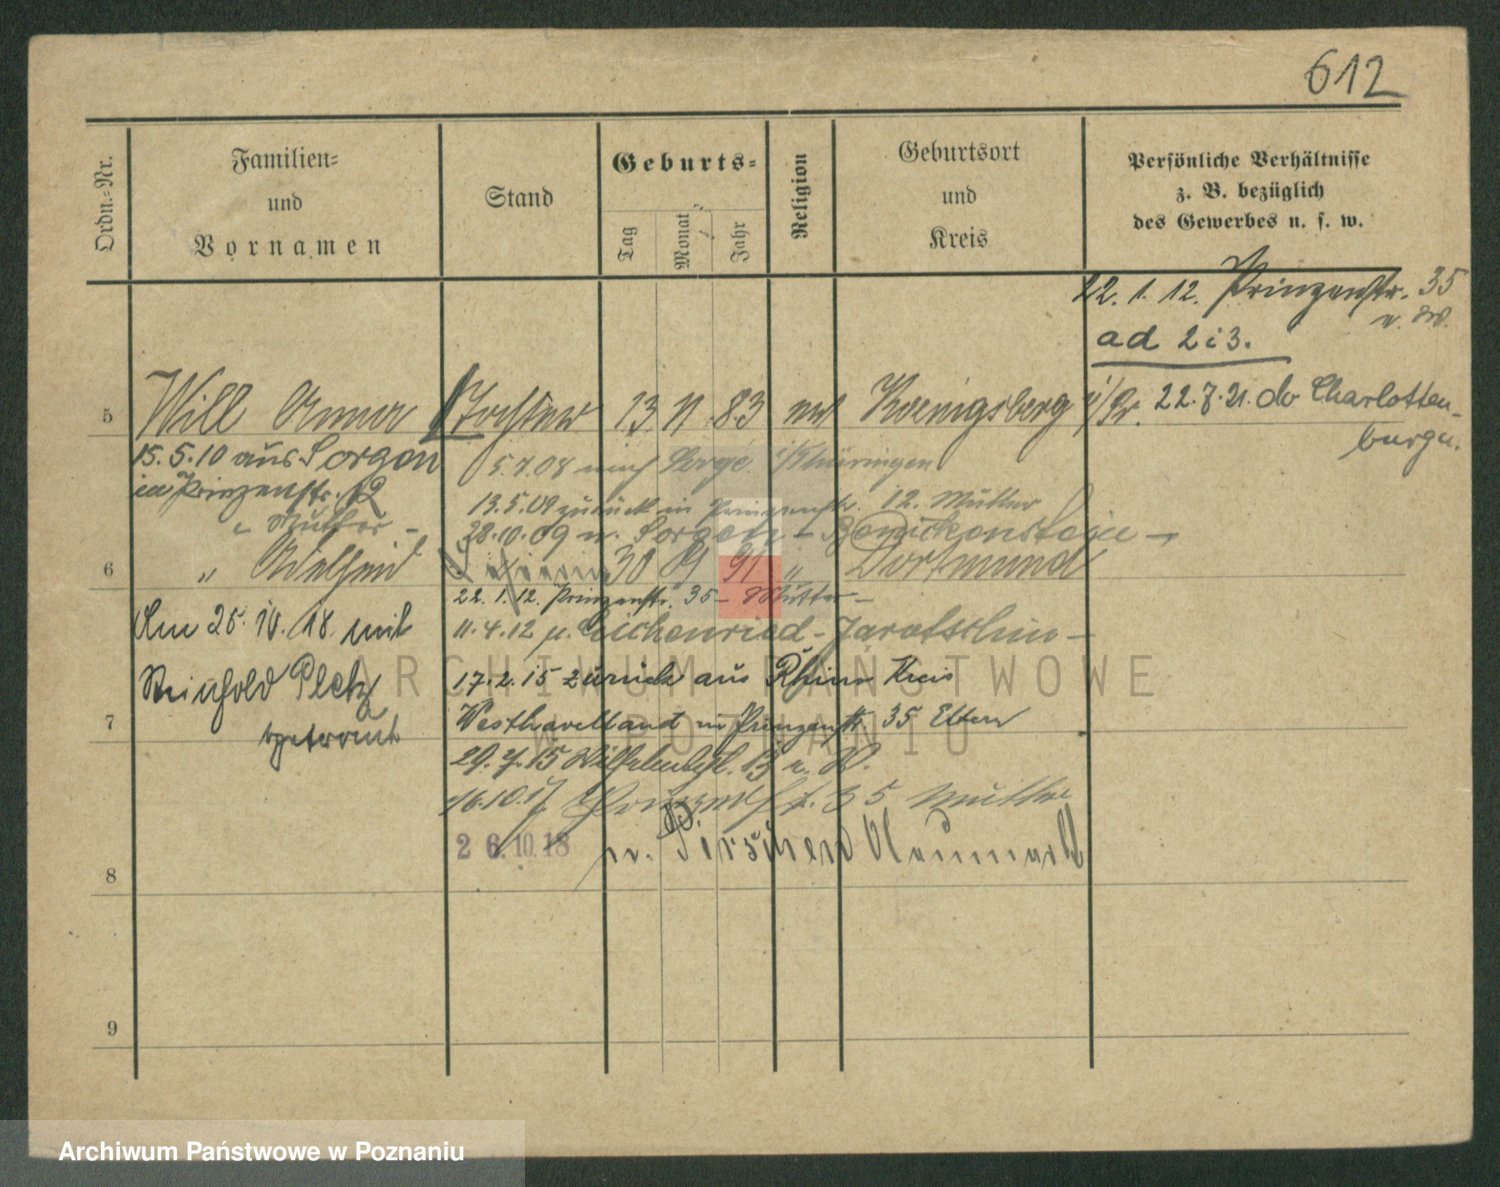 612
Ordn.-Nr.
Familien-
und
Vornamen
Stand
Geburts-
Tag
Monat
Jahr
Religion
Geburtsort
und
Kreis
Persönliche Verhältnisse
z. B. bezüglich
des Gewerbes u. s. w.
22. 1. 12. Prinzenstr. 35
ad 2 i 3.
5 Will Anna Tochter 13 11 83 Koenigsberg i/Pr. 22.7.21. do Charlotten-
burgu.
15. 5. 10 aus Sorgen
Prinzenstr. 12
Mutter
5.7.08 nach Sorge i/Thüringen
13.5.09 zurück in Prinzenstr. 12. Mutter
28.10.09 n. Sorge Benickenstein
6 " 30 9 91 " Dortmund
22. 1. 12. Prinzenstr. 35 - Mutter -
Am 25. 10. 18. mit
Reinhold Pletz
getraut
11.4.12 Eichenried - Jarotschin -
17.2.15 zurück aus Rhinow Kreis
7 Westhavelland in Prinzenstr. 35 Eltern
29. 7. 15
16.10.17 Prinzenstr. 35 Mutter
26.10.18
8
9
ARCHIWUM PAŃSTWOWE
W POZNANIU
Archiwum Państwowe w Poznaniu